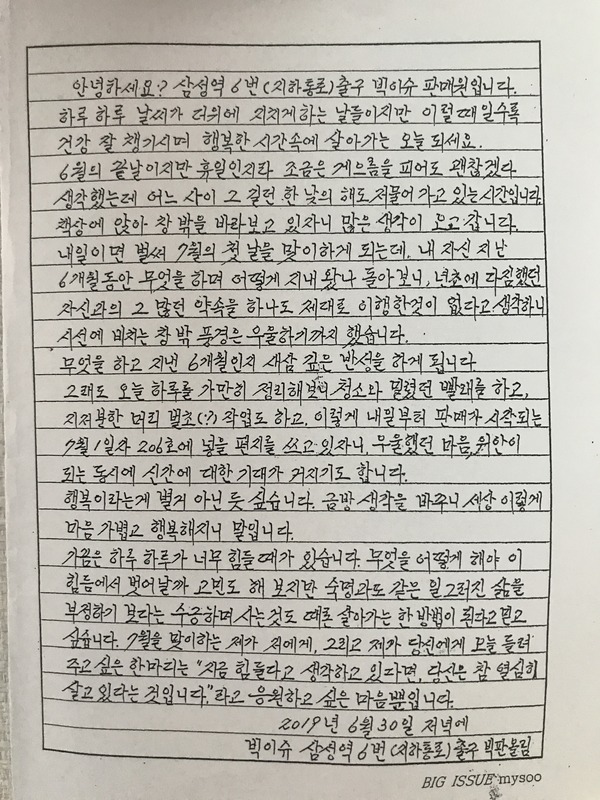 안녕하세요? 삼성역 6번(지하통로)출구 빅이슈 판매원입니다.
하루 하루 날씨가 더위에 지치게하는 날들이지만 이럴때일수록
건강 잘 챙기시며 행복한 시간속에 살아가는 오늘 되세요.
6월의 끝날이지만 휴일인지라 조금은 게으름을 피어도 괜찮겠다
생각했는데 어느 사이 그 길던 한 낮의 해도 저물어 가고 있는시간입니다.
책상에 앉아 창 밖을 바라보고 있자니 많은 생각이 오고 갑니다.
내일이면 벌써 7월의 첫 날을 맞이하게 되는데, 내 자신 지난
6개월동안 무엇을 하며 어떻게 지내 왔나 돌아보니, 년초에 다짐했던
자신과의 그 많던 약속을 하나도 제대로 이행한것이 없다고 생각하니
시선에 비치는 창 밖 풍경은 우울하기까지 했습니다.
무엇을 하고 지낸 6개월인지 새삼 깊은 반성을 하게 됩니다
그래도 오늘 하루를 가만히 정리해보니 청소와 밀렸던 빨래를 하고,
지저분한 머리 벌초(?) 작업도 하고, 이렇게 내일부터 판매가 시작되는
7월 1일자 206호에 넣을 편지를 쓰고 있자니, 우울했던 마음, 위안이
되는 동시에 신간에 대한 기대가 커지기도 합니다.
행복이라는게 별거 아닌 듯 싶습니다. 금방 생각을 바꾸니 세상 이렇게
마음 가볍고 행복해지니 말입니다.
가끔은 하루 하루가 너무 힘들 때가 있습니다. 무엇을 어떻게 해야 이
힘듬에서 벗어날까 고민도 해 보지만 숙명과도 같은 일그러진 삶을
부정하기 보다는 수긍하며 사는것도 때론 살아가는 한 방법이 된다고 믿고
싶습니다. 7월을 맞이하는 제가 저에게, 그리고 제가 당신에게 오늘 들려
주고 싶은 한마디는 "지금 힘들다고 생각하고 있다면, 당신은 참 열심히
살고 있다는 것입니다."라고 응원하고 싶은 마음뿐입니다.
2019년 6월 30일 저녁에
빅이슈 삼성역 6번(지하통로) 출구 빅판올림
BIG ISSUE mysoo